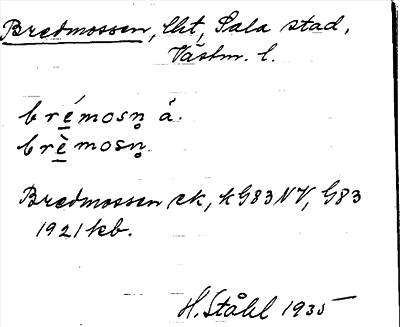 Bredmossen, lht, Sala stad,
Västm. l.
brémosn̥ á.
brèmosn̥.
Bredmossen ek, kG83NV, G83
1921 kb.
H. Ståhl 1935